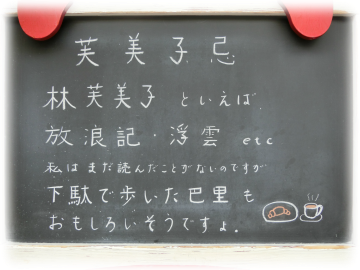 芙美子忌
林芙美子といえば、
放浪記・浮雲 etc
私はまだ読んだことがないのですが
下駄で歩いた巴里も
おもしろいそうですよ.